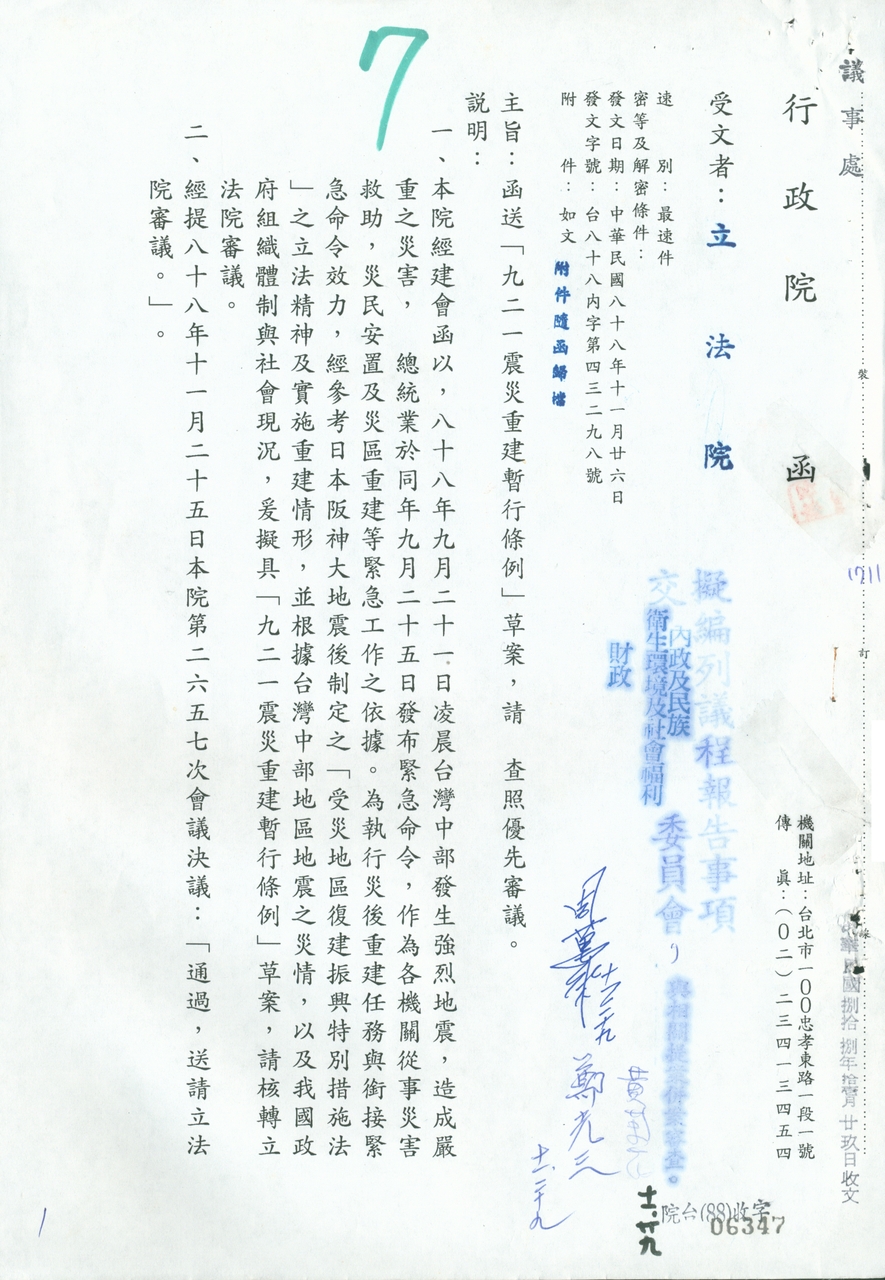 議事處
裝
訂
線
行政院 函
機關地址：台北市一〇〇忠孝東路一段一號
傳 真：(〇二)二三四一三四五四
受文者：立法院
速別：最速件
密等及解密條件：
發文日期：中華民國八十八年十一月廿六日
發文字號：台八十八內字第四三二九八號
附件：如文
附件隨函歸檔
主旨：函送「九二一震災重建暫行條例」草案，請 查照優先審議。
説明：
一、本院經建會函以，八十八年九月二十一日凌晨台灣中部發生強烈地震，造成嚴
重之災害， 總統業於同年九月二十五日發布緊急命令，作為各機關從事災害
救助，災民安置及災區重建等緊急工作之依據。為執行災後重建任務與銜接緊
急命令效力，經參考日本阪神大地震後制定之「受災地區復建振興特別措施法
」之立法精神及實施重建情形，並根據台灣中部地區地震之災情，以及我國政
府組織體制與社會現況，爰擬具「九二一震災重建暫行條例」草案，請核轉立
法院審議。
二、經提八十八年十一月二十五日本院第二六五七次會議決議：「通過，送請立法
院審議。」。
7
擬編列議程報告事項
交
內政及民族
衛生環境及社會福利
財政
委員會
與相關提案併案審查。
中華民國捌拾捌年拾壹月廿玖日收文
院台(88)收字
06347
鄭光三
十一、廿九
1711
1